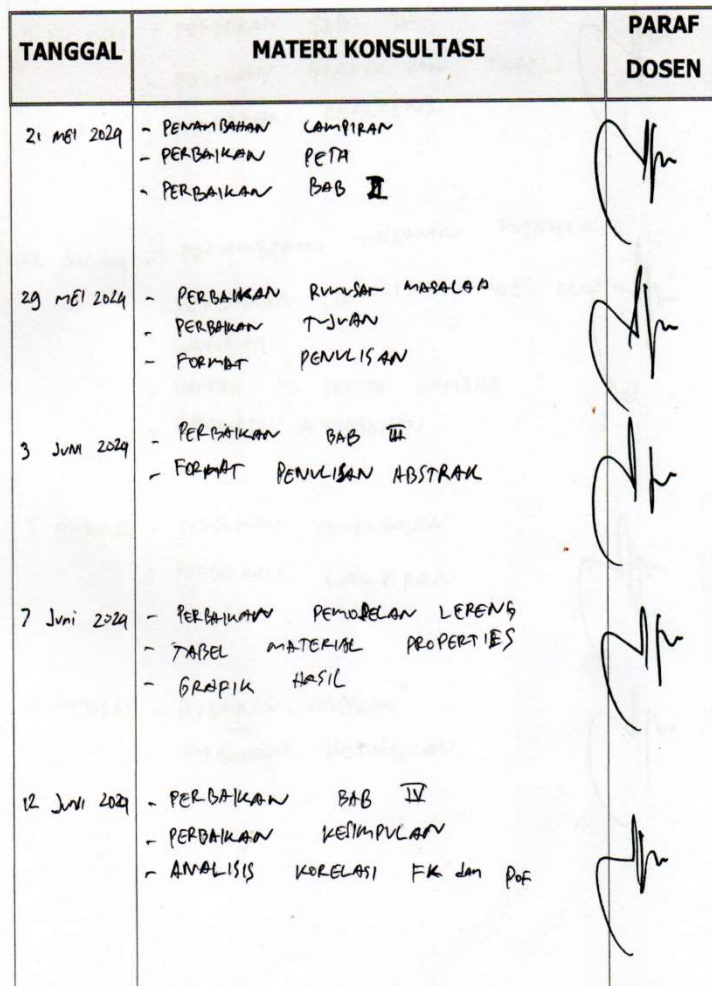 TANGGAL MATERI KONSULTASI PARAF DOSEN
21 MEI 2024 - PENAMBAHAN LAMPIRAN
- PERBAIKAN PETA
- PERBAIKAN BAB II
29 MEI 2024 - PERBAIKAN RUMUSAN MASALAH
- PERBAIKAN TUJUAN
- FORMAT PENULISAN
3 JUNI 2024 - PERBAIKAN BAB III
- FORMAT PENULISAN ABSTRAK
7 Juni 2024 - PERBAIKAN PEMODELAN LERENG
- TABEL MATERIAL PROPERTIES
- GRAFIK HASIL
12 JUNI 2024 - PERBAIKAN BAB IV
- PERBAIKAN KESIMPULAN
- ANALISIS KORELASI FK dan PoF